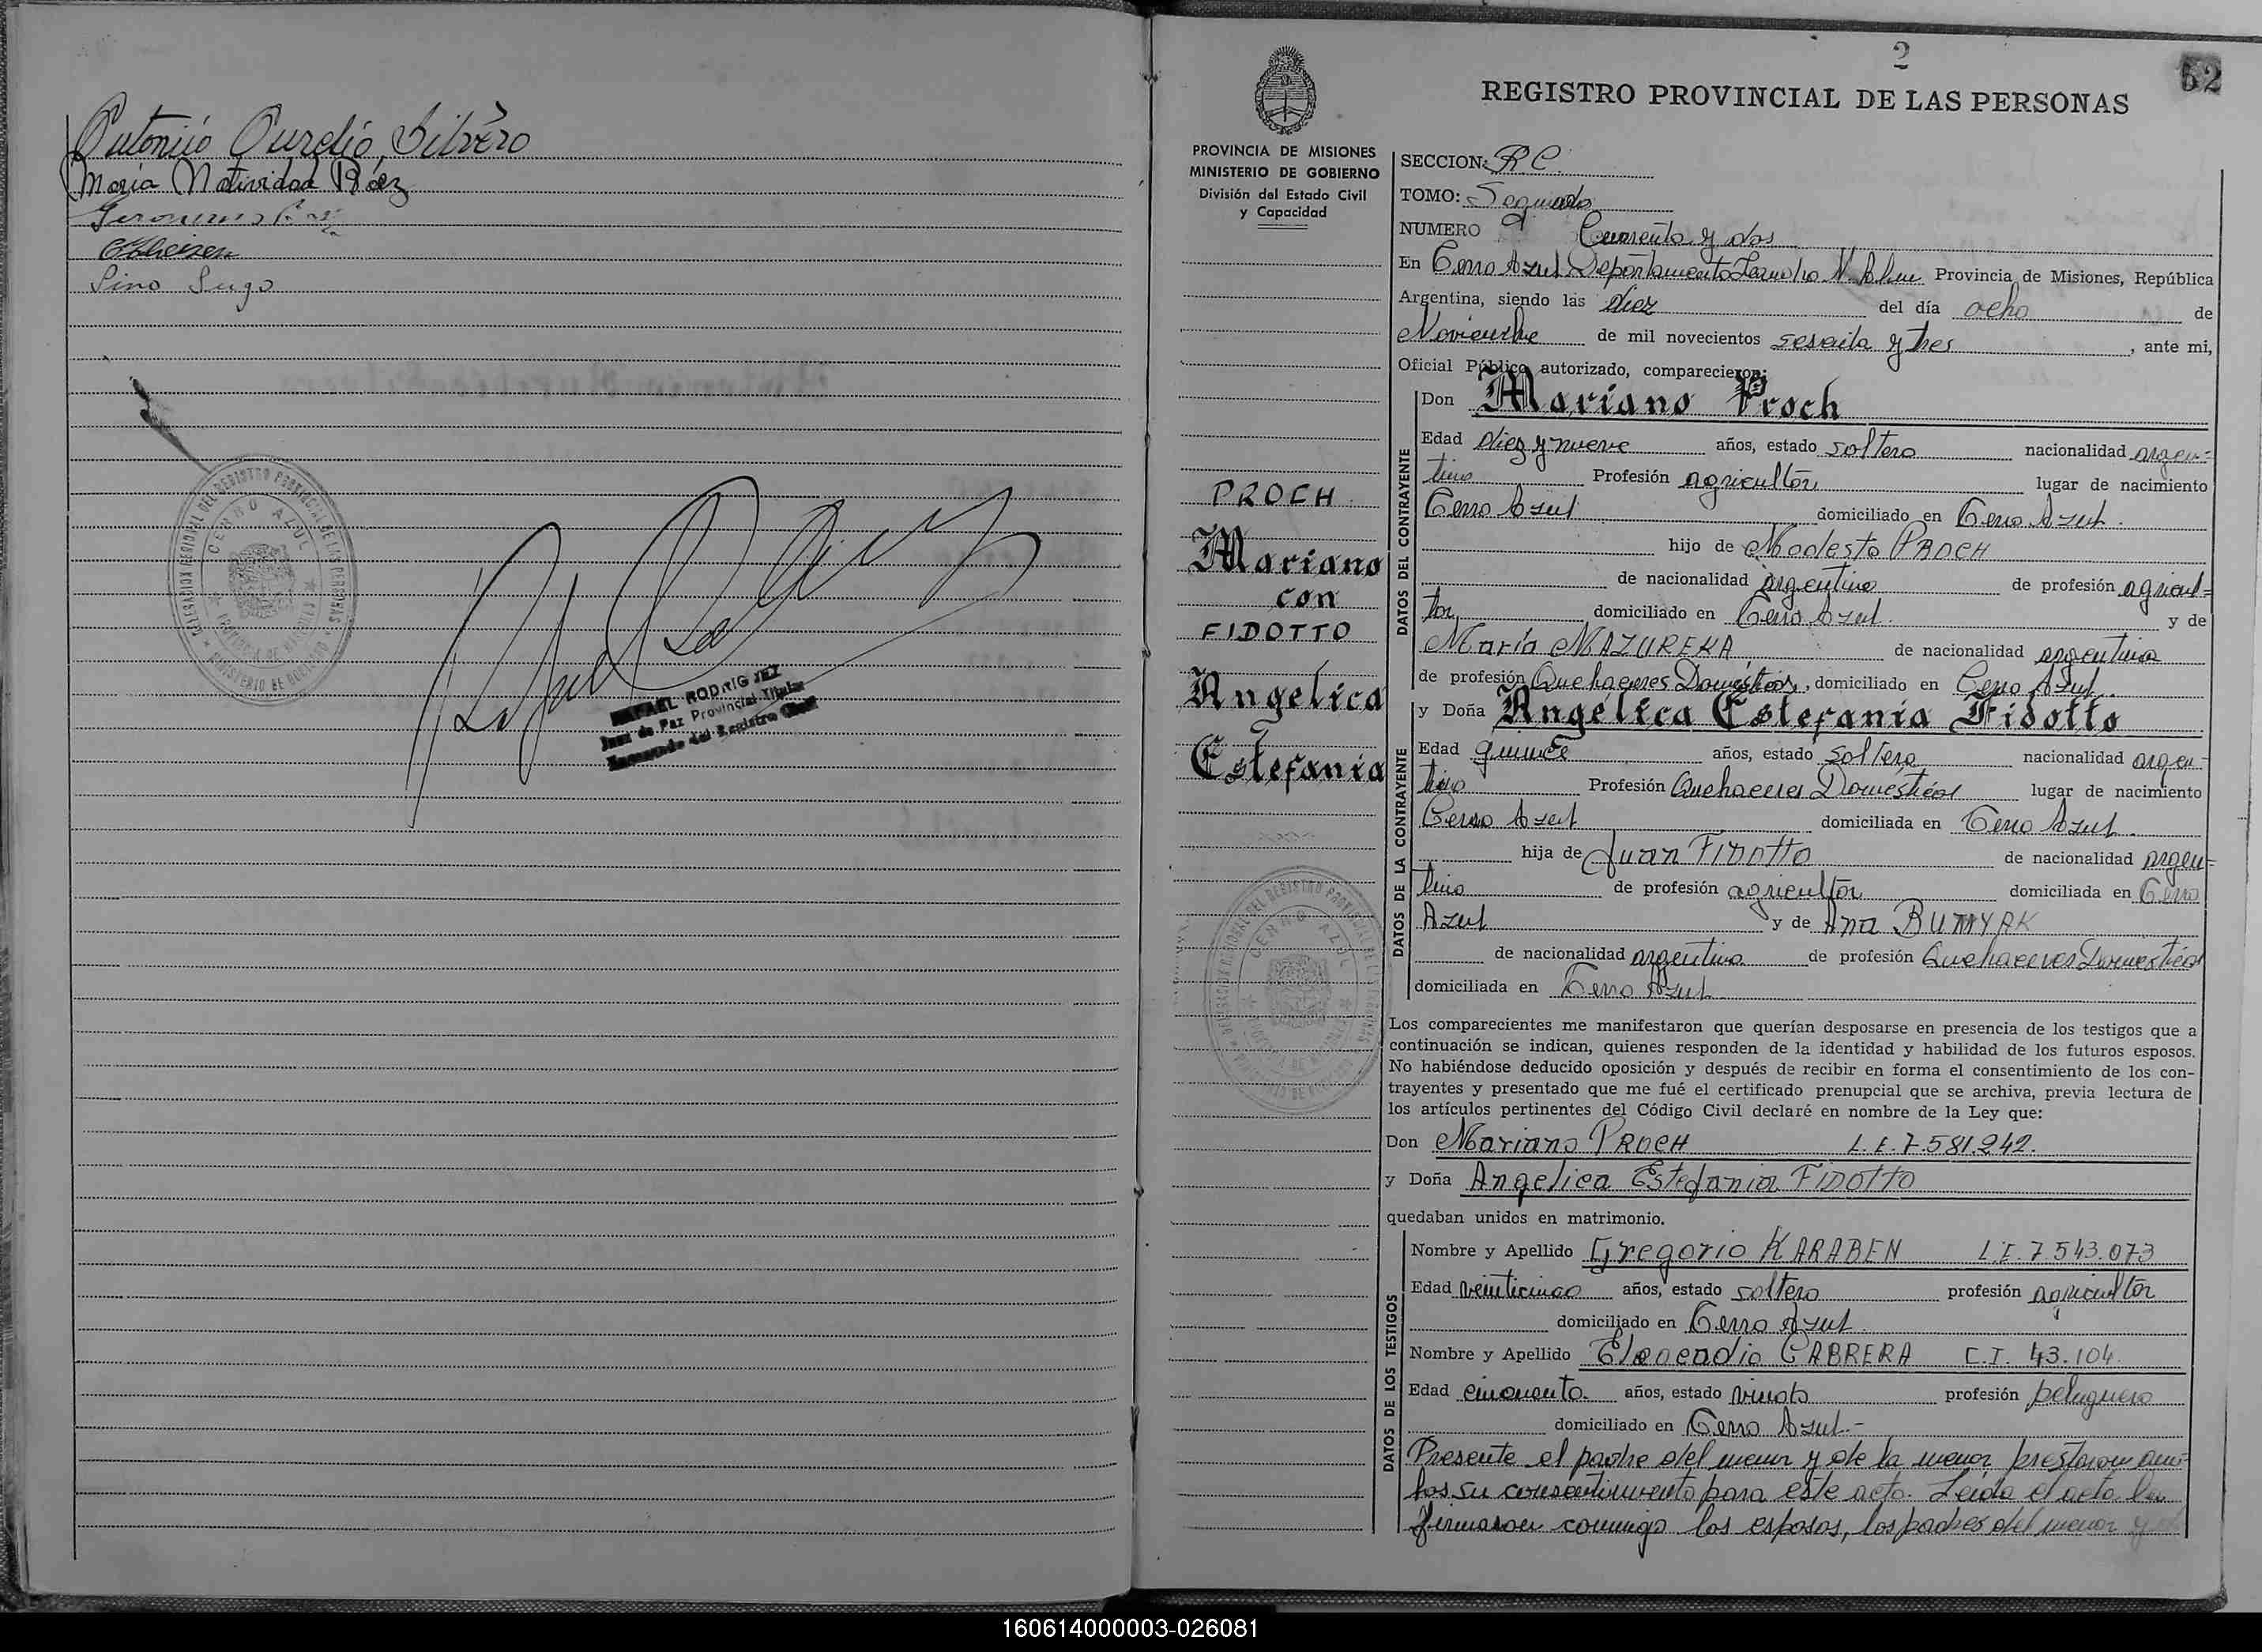 Antonio Aurelio Silvero
María Natividad Báez
Lino Lugo
DELEGACION REGIONAL DEL REGISTRO PROVINCIAL DE LAS PERSONAS
CERRO AZUL
PROVINCIA DE MISIONES
MINISTERIO DE GOBIERNO
RAFAEL RODRIGUEZ
Juez de Paz Provincial Titular
Encargado del Registro Civil
2
52
REGISTRO PROVINCIAL DE LAS PERSONAS
PROVINCIA DE MISIONES
MINISTERIO DE GOBIERNO
División del Estado Civil
y Capacidad
PROCH
Mariano
con
FIDOTTO
Angelica
Estefania
SECCION: R C.
TOMO: Segundo
NUMERO Cuarenta y dos
En Cerro Azul Departamento Leandro N. Alem Provincia de Misiones, República
Argentina, siendo las diez del día ocho de
Noviembre de mil novecientos sesenta y tres, ante mi,
Oficial Público autorizado, comparecieron:
DATOS DEL CONTRAYENTE
Don Mariano Proch
Edad diez y nueve años, estado soltero nacionalidad argen=
tino Profesión agricultor lugar de nacimiento
Cerro Azul domiciliado en Cerro Azul.
hijo de Modesto PROCH
de nacionalidad argentino de profesión agricul=
tor domiciliado en Cerro Azul. y de
María MAZUREKA de nacionalidad argentina
de profesión Quehaceres Domésticos, domiciliado en Cerro Azul.
DATOS DE LA CONTRAYENTE
y Doña Angelica Estefania Fidotto
Edad quince años, estado soltera nacionalidad argen-
tina Profesión Quehaceres Domésticos lugar de nacimiento
Cerro Azul domiciliada en Cerro Azul.
hija de Juan FIDOTTO de nacionalidad argen=
tino de profesión agricultor domiciliada en Cerro
Azul y de Ana
de nacionalidad argentina de profesión Quehaceres Domésticos
domiciliada en Cerro Azul
Los comparecientes me manifestaron que querían desposarse en presencia de los testigos que a
continuación se indican, quienes responden de la identidad y habilidad de los futuros esposos.
No habiéndose deducido oposición y después de recibir en forma el consentimiento de los con-
trayentes y presentado que me fué el certificado prenupcial que se archiva, previa lectura de
los artículos pertinentes del Código Civil declaré en nombre de la Ley que:
Don Mariano PROCH L.E. 7.581.242.
y Doña Angelica Estefania FIDOTTO
quedaban unidos en matrimonio.
DATOS DE LOS TESTIGOS
Nombre y Apellido Gregorio KARABEN L.E. 7.543.073
Edad veinticinco años, estado soltero profesión agricultor
domiciliado en Cerro Azul
Nombre y Apellido CABRERA C.I. 43.104.
Edad cincuenta años, estado viudo profesión peluquero
domiciliado en Cerro Azul.-
Presente el padre del menor y de la menor prestaron am-
bos su consentimiento para este acto. Leída el acta la
firmaron conmigo los esposos, los padres del menor y
160614000003-026081